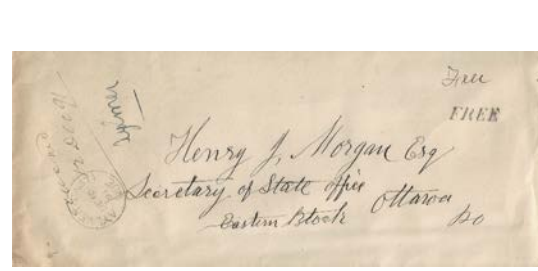 Free
FREE
Henry J. Morgan Esq
Secretary of State office
Eastern Block Ottawa